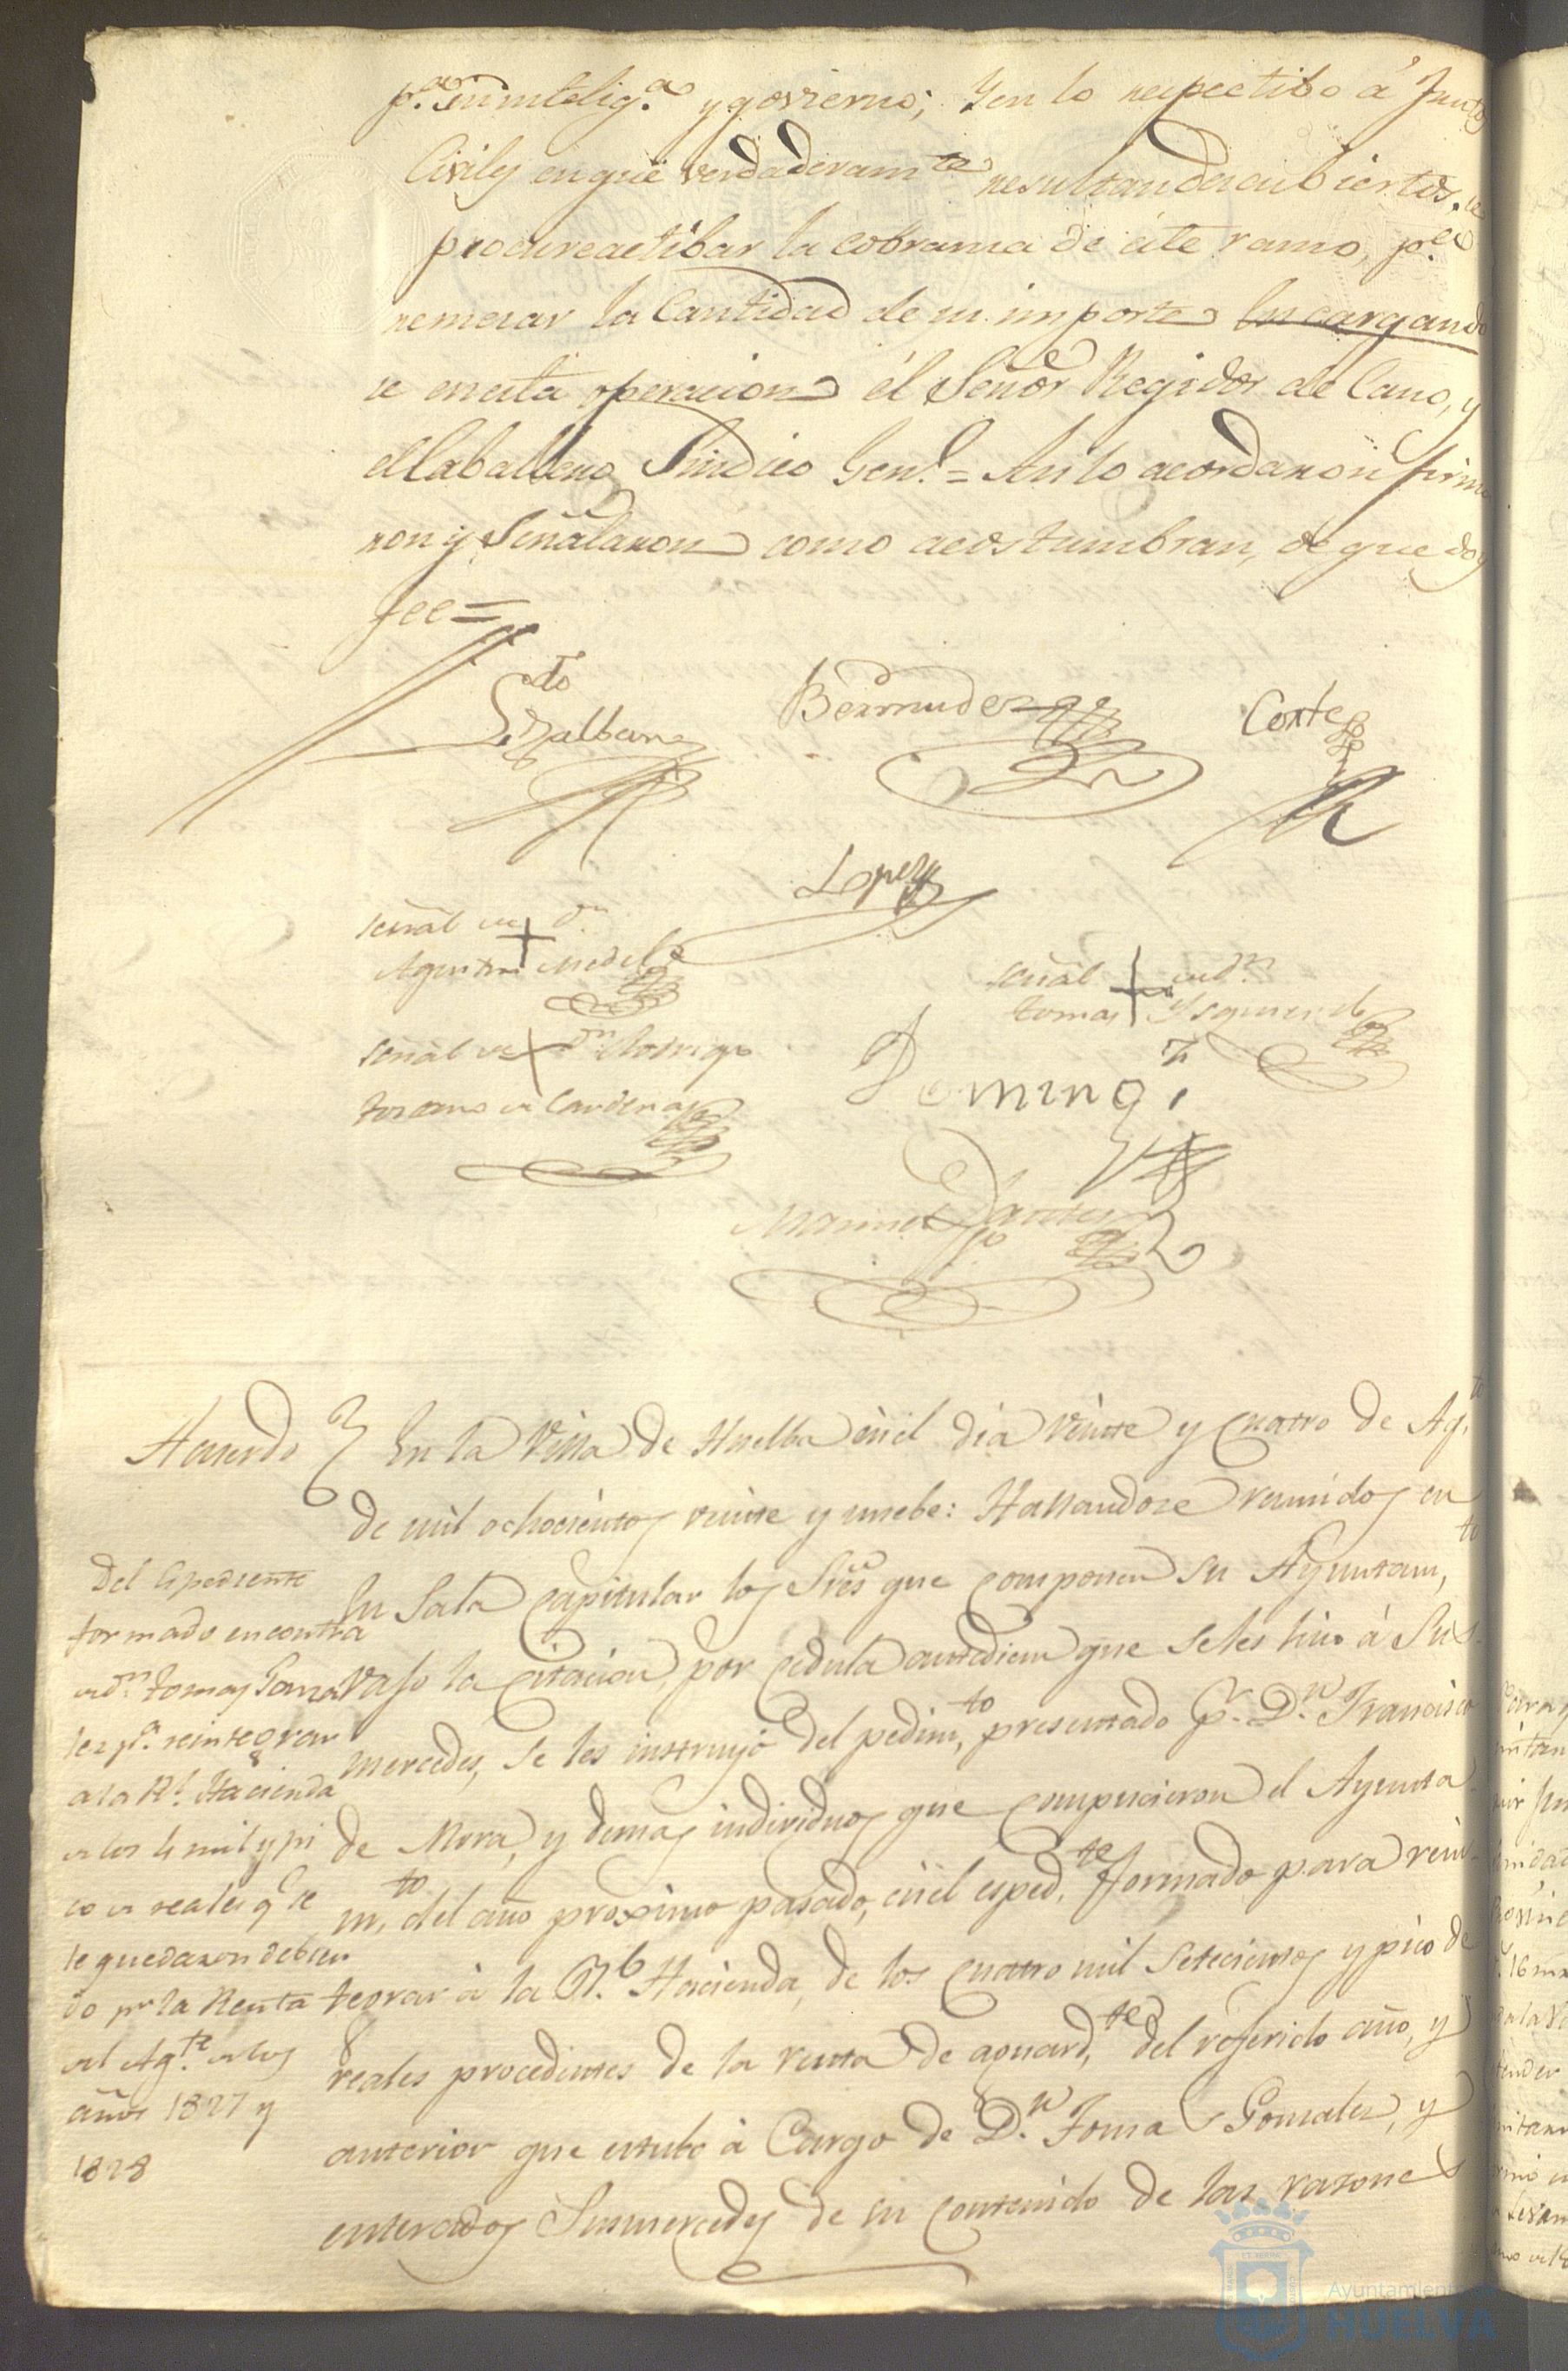 p.ª su intelig.ª y govierno; Yen lo respectibo á frutos
Civiles en que verdaderam.te resultan decubiertos, se
procure actibar la cobranza de éste ramo, p.a
remesar la Cantidad de su importe encargando
se en esta operacion él Señor Regidor de Cano, y
el Caballero Sindico Gen.l = Asi lo acordaron firma
ron y Señalaron como acostumbran, de que doy
fee =
Bermudez
Cortes
Lopez
señal de + d.n
Agustin Medel
señal + de d.n
tomas Ysquierdo
señal de + d.n Rodrigo
de Cardenas
Doming.z
Manuel
Acuerdo En la Villa de Huelba en el dia veinte y Cuatro de Ag.to
de mil ochocientos veinte y nuebe: Hallandose reunidos en
su Sala Capitular los Sres que componen su Ayuntam.to
vajo la citacion por cedula antediem que seles hizo á Sus
mercedes, se les instruyó del pedim.to presentado p.r D.n Francisco
de Mora, y demas individuos que compusieron el Ayunta
m.to del año proximo pasado, en el esped.te formado para rein
tegrar à la R.l Hacienda, de los cuatro mil setecientos y pico de
reales procedentes de la renta de aguard.te del referido año, y
anterior que estubo à Cargo de D.n Tomas Gonzalez, y
enterados Susmercedes de su contenido de las razones
Del Espediente
formado en contra
de d.n tomas Gonza
lez p.a reintegrar
a la R.l Hacienda
de los 4 mil y pi
co de reales q.e se
le quedaron debien
do p.r la Renta
del Ag.te de los
años 1827 y
1828
Ayuntamiento
HUELVA